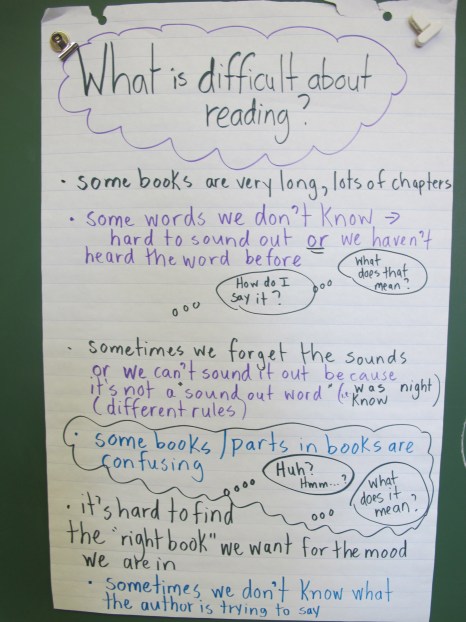 What is difficult about
reading?
• some books are very long, lots of chapters
• some words we don't know →
hard to sound out or we haven't
heard the word before
How do I
say it?
What
does that
mean?
• sometimes we forget the sounds
or we can't sound it out because
it's not a "sound out word" (... was night)
know
(different rules)
• some books/parts in books are
confusing
Huh?
Hmm...?
What
does it
mean?
• it's hard to find
the "right book" we want for the mood
we are in
• sometimes we don't know what
the author is trying to say